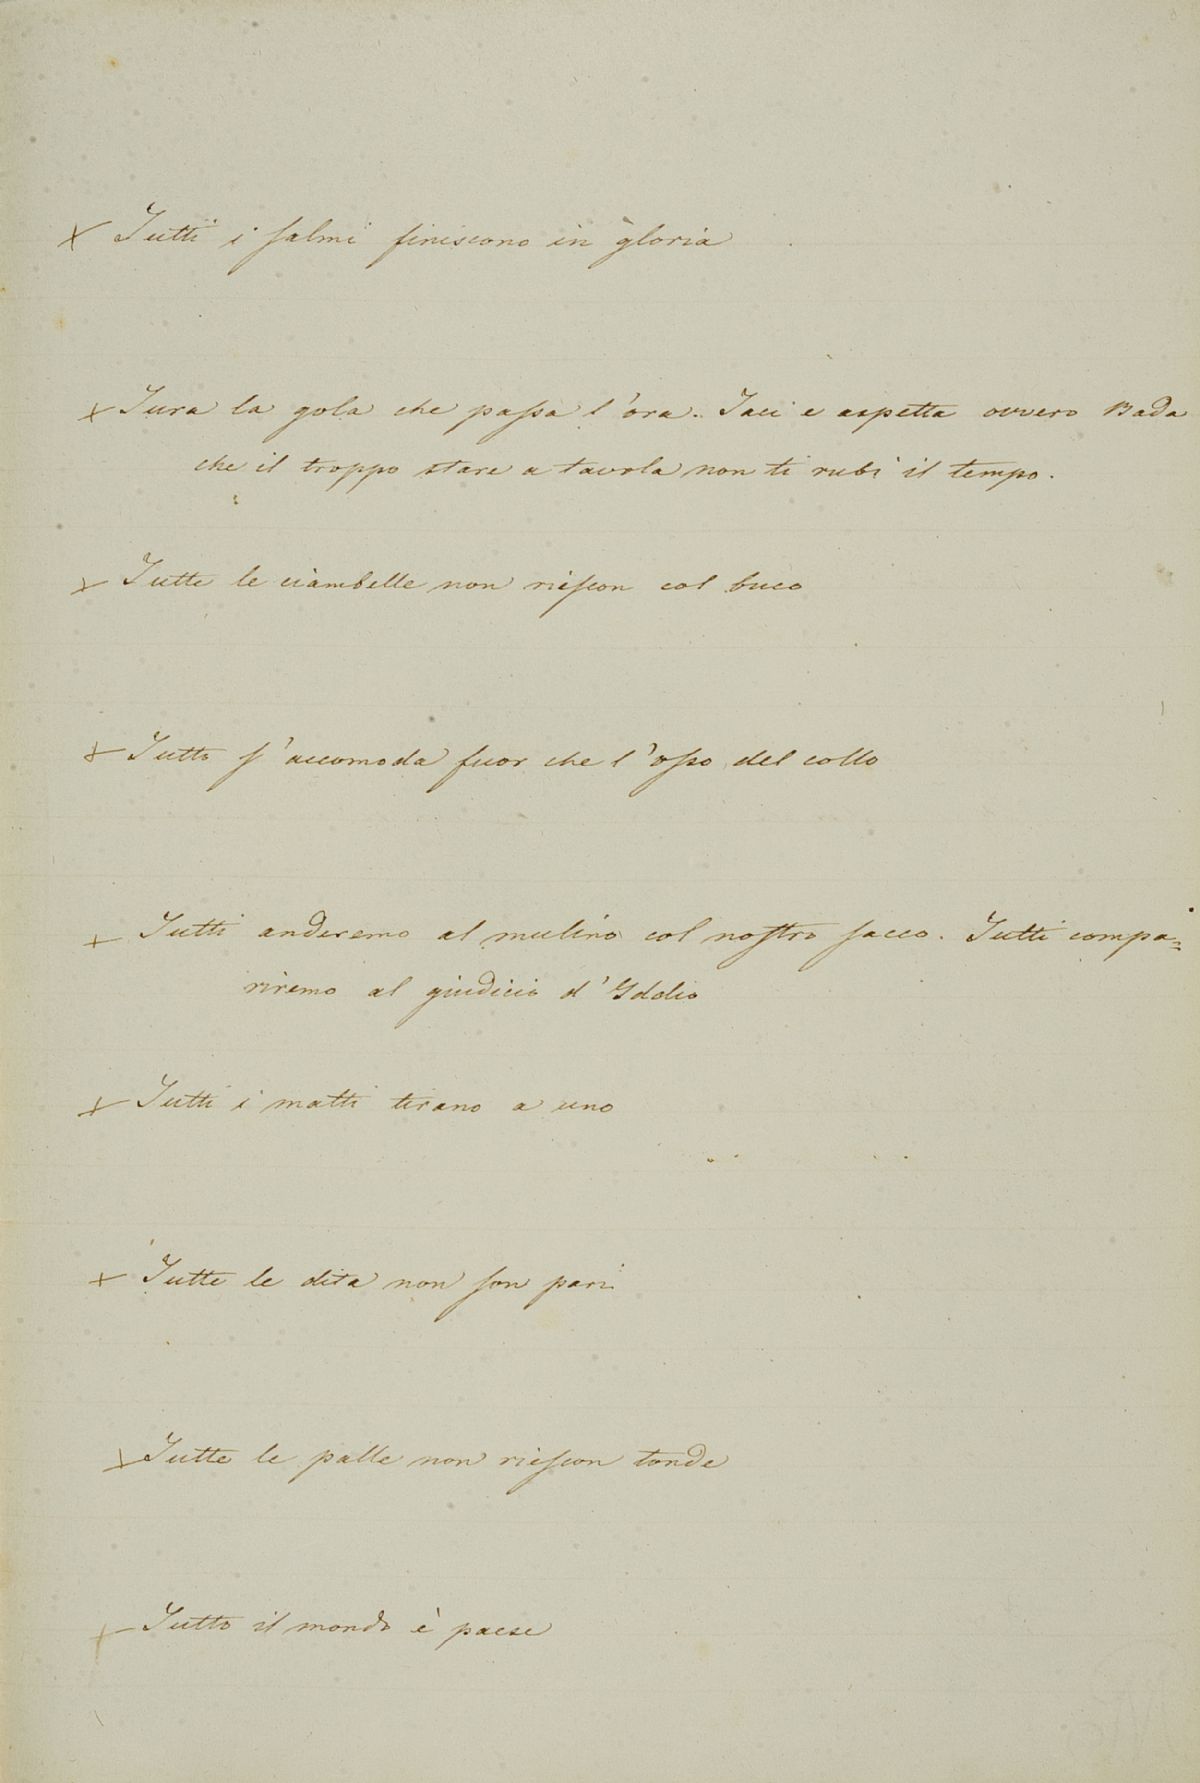 × Tutti i salmi finiscono in gloria
× Tura la gola che passa l'ora. Taci e aspetta ovvero Bada
che il troppo stare a tavola non ti rubi il tempo.
× Tutte le ciambelle non riescon col buco
× Tutto s'accomoda fuor che l'osso del collo
× Tutti anderemo al mulino col nostro sacco. Tutti compa=
riremo al giudicio d'Iddio
× Tutti i matti tirano a uno
× Tutte le dita non son pari
× Tutte le palle non riescon tonde
× Tutto il mondo è paese